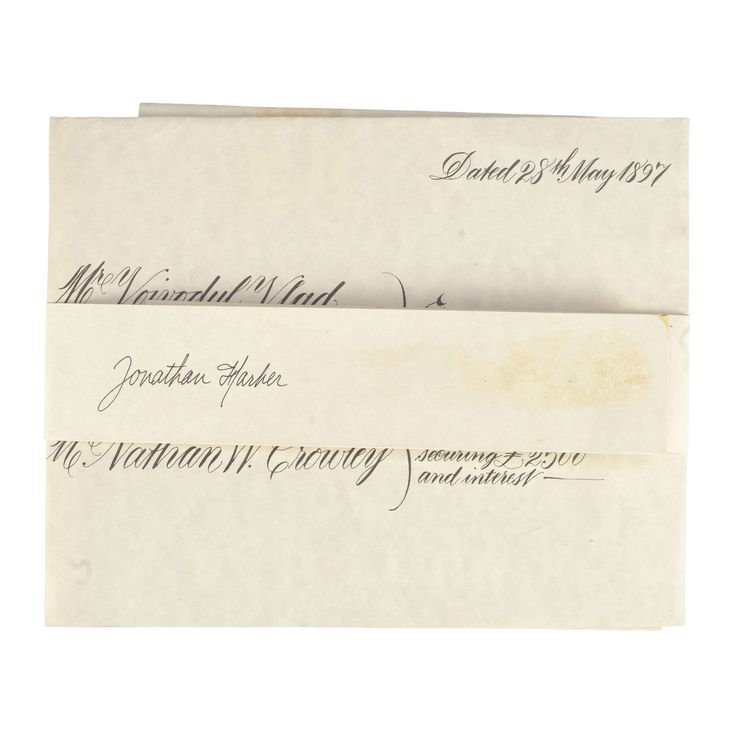 Dated 28th May 1897
Mr Voivodul Vlad
Jonathan Harker
Mr Nathan W. Crowley
securing £2500
and interest